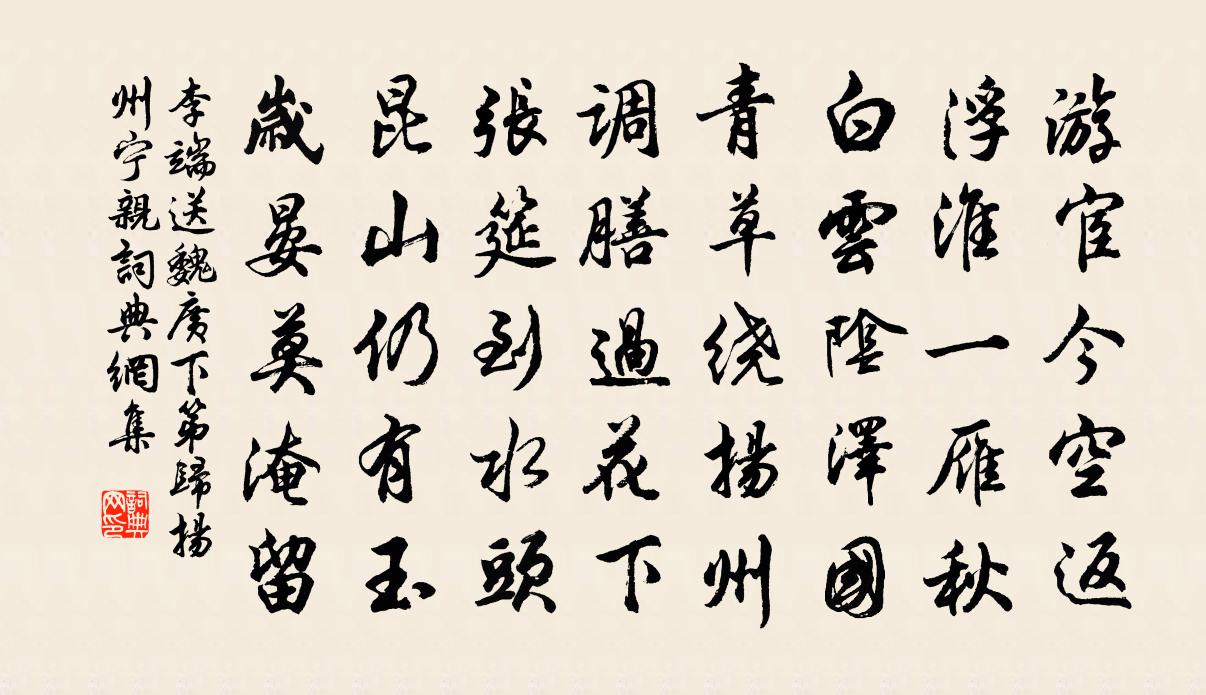 游宦今空返
浮淮一雁秋
白雲陰澤國
青草绕揚州
調膳過花下
張筵到水頭
昆山仍有玉
歲晏莫淹留
李端送魏廣下第歸揚
州宁親詞典網集
詞典
网印